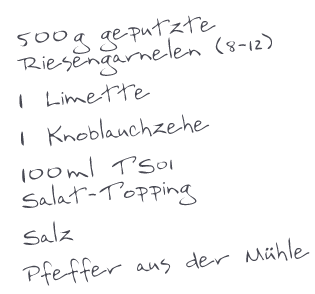 500g geputzte
Riesengarnelen (8-12)
1 Limette
1 Knoblauchzehe
100ml TSOI
Salat-Topping
Salz
Pfeffer aus der Mühle